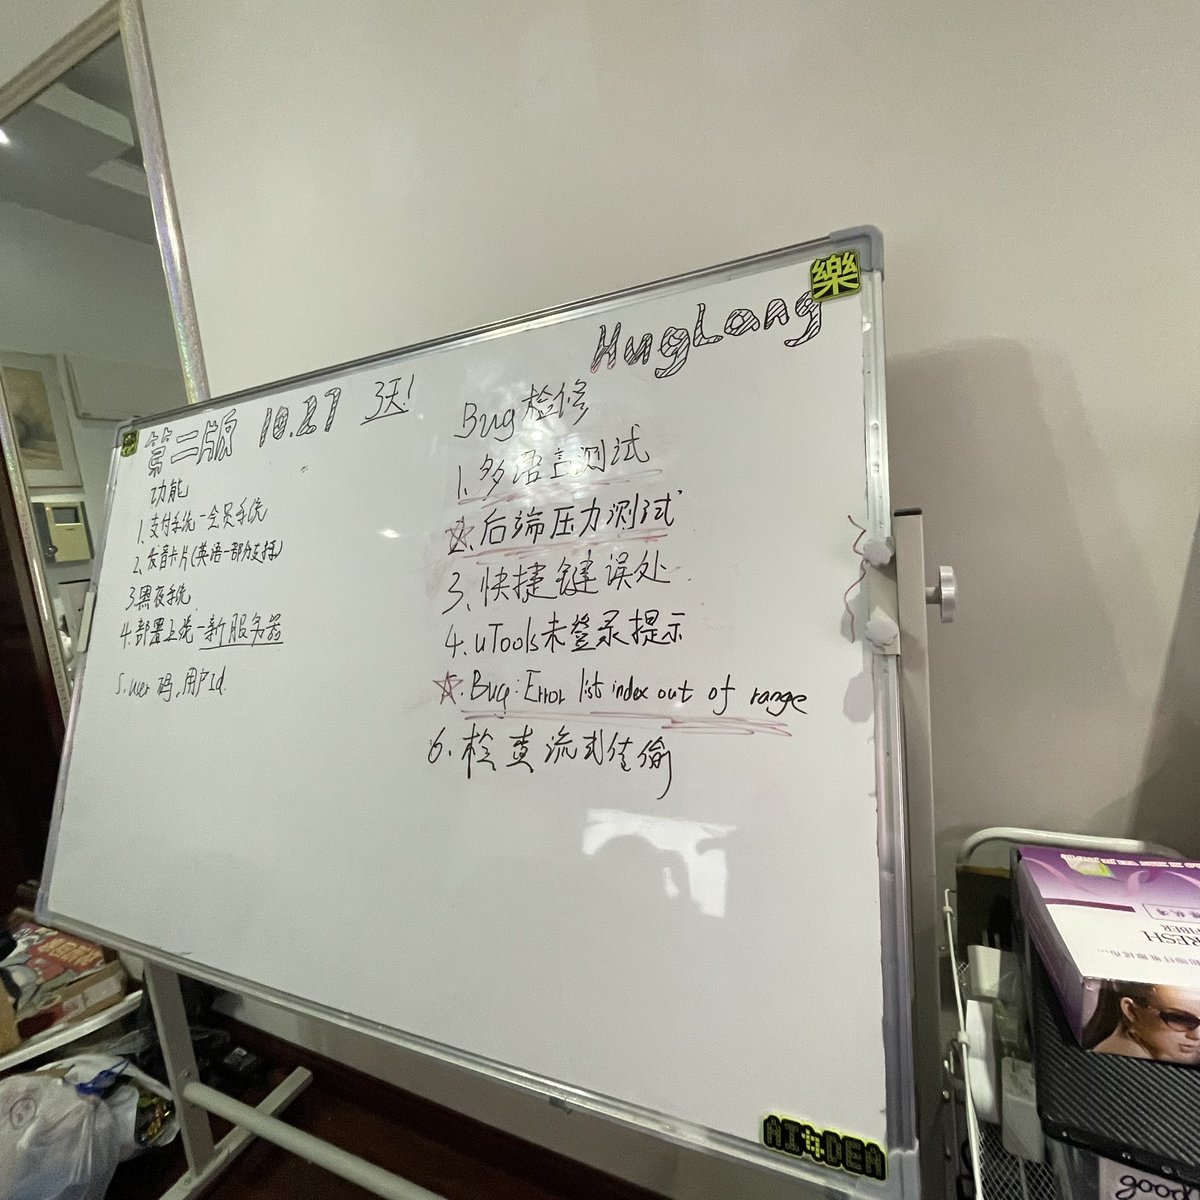 樂
HugLang
第二版 10.27 3天!
功能
1.支付系统-会员系统
2、发音卡片(英语-部分支持)
3黑夜系统
4.部署上线-新服务器
5.user 码,用户id
Bug检修
1.多语言测试
2.后端压力测试
3、快捷键误处
4.uTools未登录提示
5.Bug:Error list index out of range
6.检查流式传偷
AI IDEA
RESH
FIBER
goog